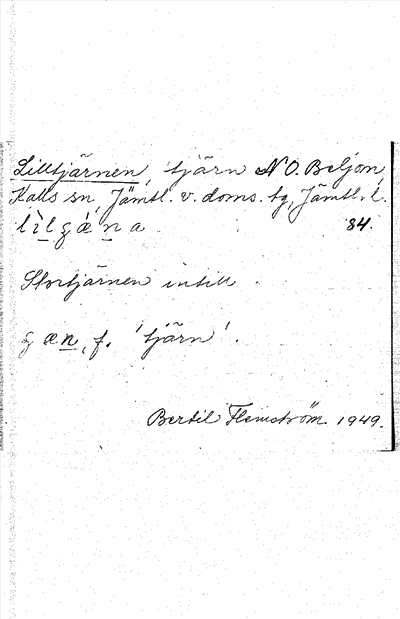 Lilltjärnen, tjärn N O. Beljom,
Kalls sn, Jämtl. v. doms. tg, Jämtl. l.
lìlgǽna 84.
Stortjärnen intill.
gæn, f. 'tjärn'.
Bertil Flemström 1949.